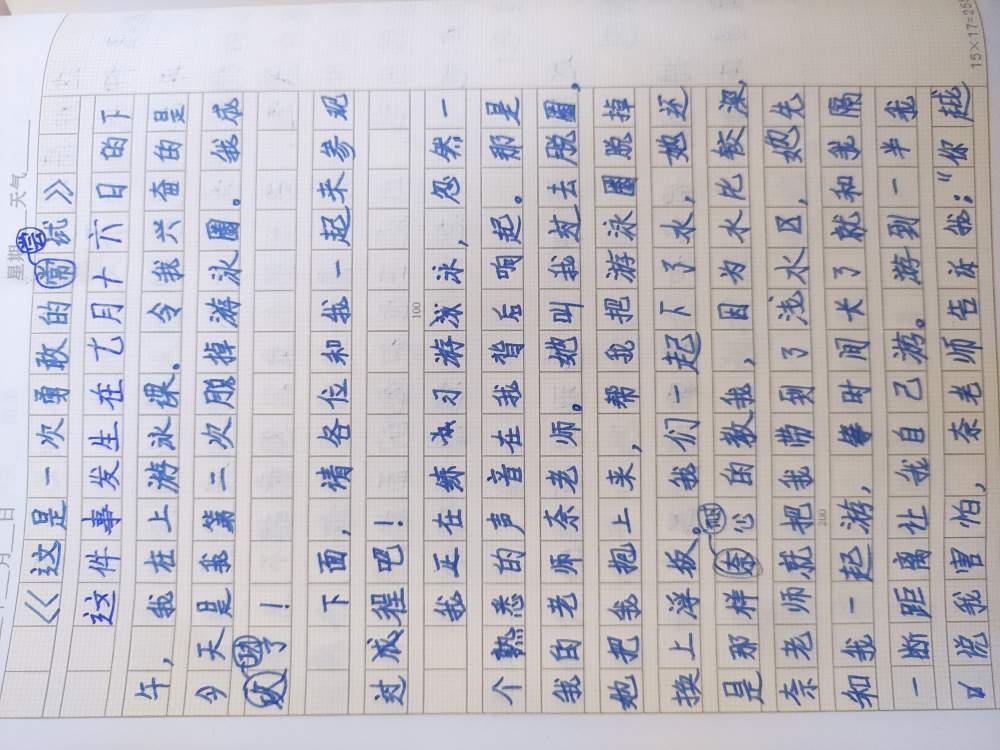 月 日 星期 天气
《这是一次勇敢的尝试》
这件事发生在七月十六日的下
午，我在上游泳课。令我兴奋的是
今天是我第二次脱掉游泳圈。我成
功了！
下面，请各位和我一起来参观
过成程吧！
100
我正在练习游泳，忽然一
个熟悉的声音在我背后响起。那是
我的老师奈老师。她叫我过去脱圈，
她把我抱上来，帮我把游泳圈脱掉
换上浮板。我们一起下了水，她还
是那样耐心的教我，因为水比较深，
奈老师就把我带到了浅水区，她先
200
和我一起游，时间长了就和我隔
一断距离让我自己游。游到一半我
说我害怕，奈老师告诉我：“你越
15×17=255